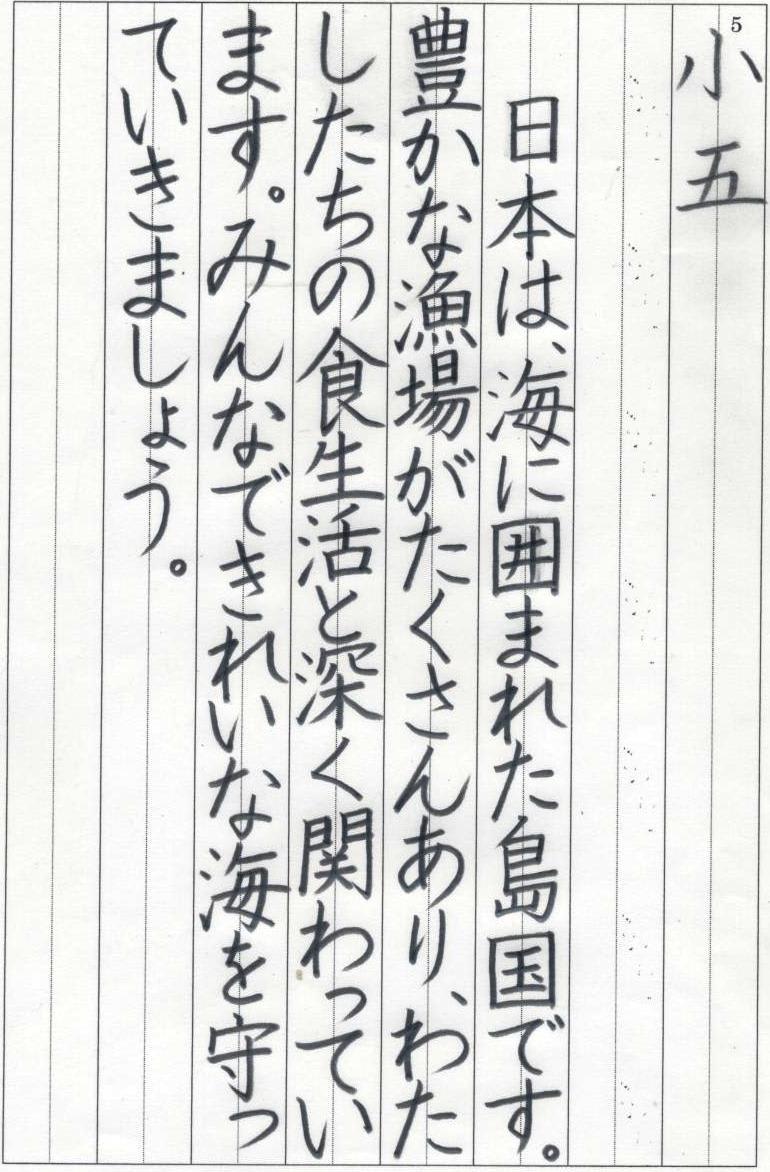 5
小五
日本は、海に囲まれた島国です。
豊かな漁場がたくさんあり、わた
したちの食生活と深く関わってい
ます。みんなできれいな海を守っ
ていきましょう。